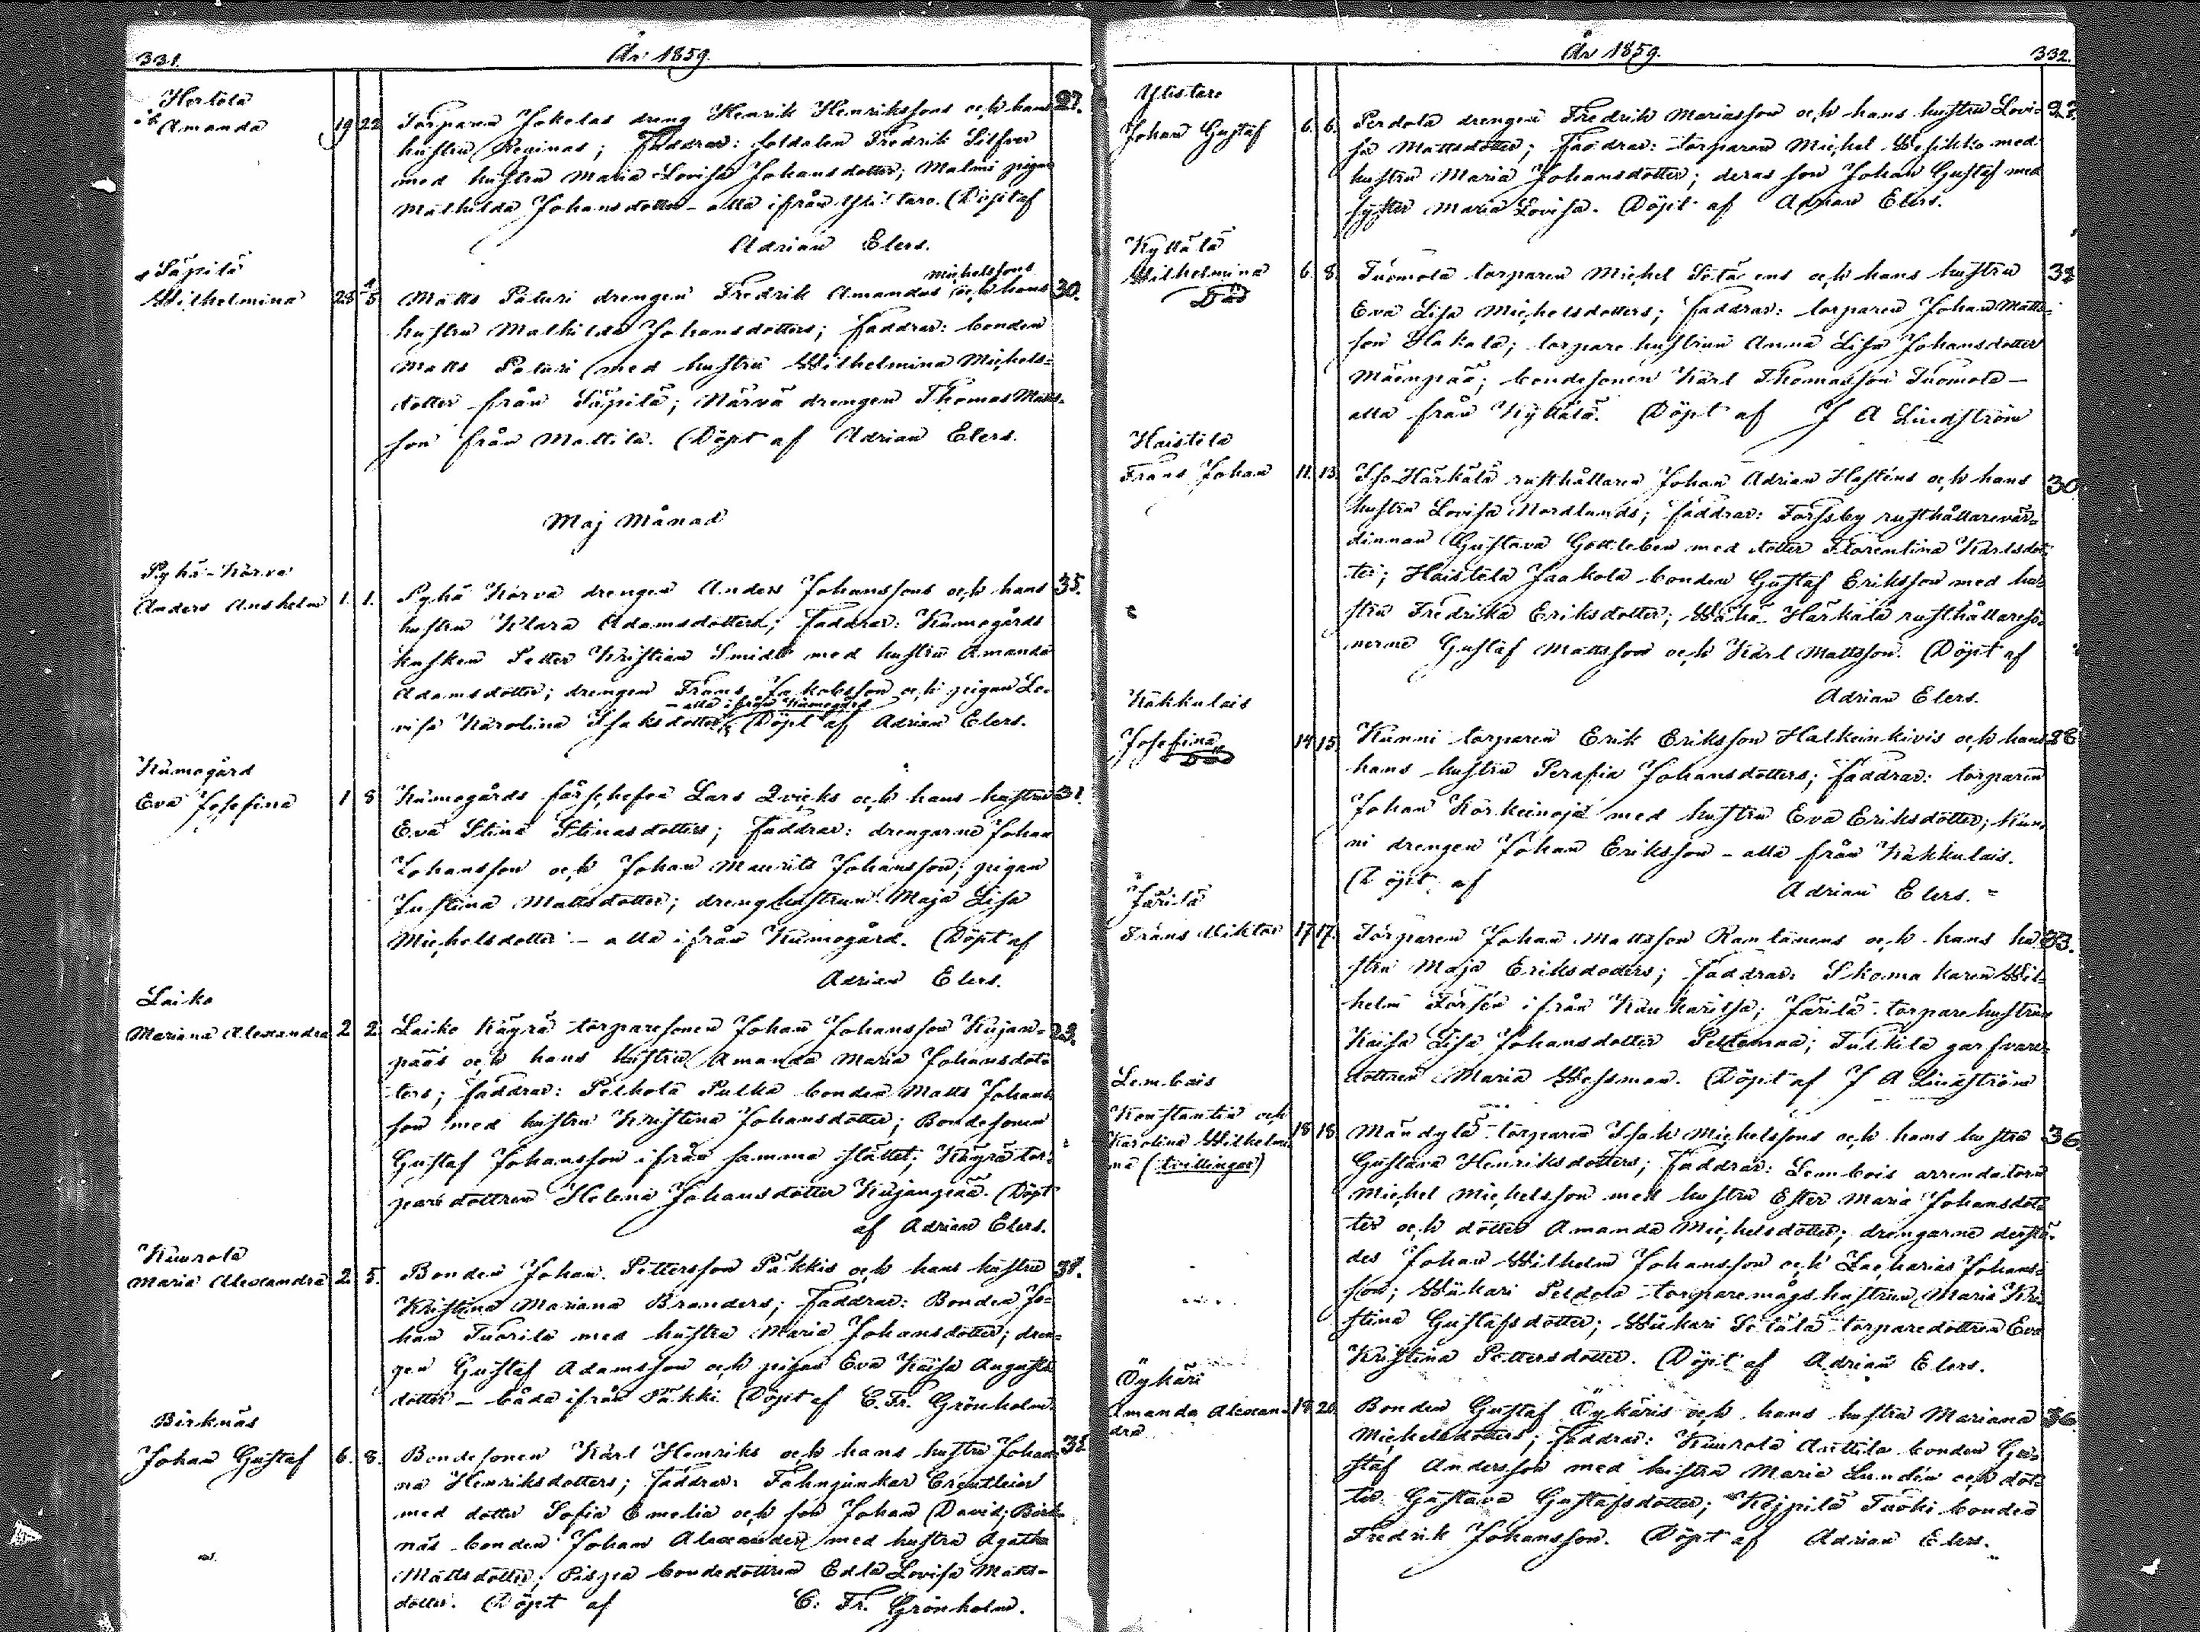 331.
År 1859.
Hertola
Amanda 19 22
Torparen Jokelas dreng Henrik Henrikssons och hans 27.
hustru Reginas; Faddrar: soldaten Fredrik Silfver
med hustru Maria Lovisa Johansdotter; Malmi pigan
Mathilda Johansdotter – alla ifrån Ylistaro. (Döpt af
Adrian Elers.
Säpilä
Wilhelmina 28 5
Michelssons
Matts Paturi drengen Fredrik Amandus och hans 30.
hustru Mathilda Johansdotters; faddrar: bonden
Matts Paturi med hustru Wilhelmina Michels-
dotter från Säpilä; Närvä drengen Thomas Matts-
son från Mattila. (Döpt af Adrian Elers.
Maj Månad
Pyhä-Korva
Anders Anshelm 1. 1.
Pyhä Korva drengen Anders Johanssons och hans 35.
hustru Klara Adamsdotters; Faddrar: Kumogårds
kusken Petter Kristian Smidt med hustru Amanda
Adamsdotter; drengen Frans Jakobsson och pigan Lo-
– alla ifrån Kumogård
visa Karolina Isaksdotter, (Döpt af Adrian Elers.
Kumogård
Eva Josefina 1 8
Kumogårds Lars Qvicks och hans hustru 31.
Eva Stina Stinasdotters; Faddrar: drengarne Johan
Johansson och Johan Maurits Johansson; pigan
Justina Mattsdotter; drenghustrun Maja Lisa
Michelsdotter – alla ifrån Kumogård. (Döpt af
Adrian Elers.
Laiko
Mariana Alexandra 2 2.
Laiko Kägrä torparesonen Johan Johansson Kujan-
pääs och hans hustru Amanda Maria Johansdot-
ters; faddrar: Peltola Pulka bonden Matts Johans-
son med hustru Kristina Johansdotter; Bondesonen
Gustaf Johansson ifrån samma stället; Kägrä tor-
pare dottren Helena Johansdotter Kujanpää. (Döpt
af Adrian Elers.
Kuurola
Maria Alexandra 2. 5.
Bonden Johan Pettersson Päkkis och hans hustru 31.
Kristina Mariana Branders; Faddrar: Bonden Jo-
han Tuorila med hustru Maria Johansdotter; dren-
gen Gustaf Adamsson och pigan Eva Kaisa Augusts
dotter – båda ifrån Päkki. (Döpt af C. Fr. Grönholm.
Birknäs
Johan Gustaf 6. 8.
Bondesonen Karl Henriks och hans hustru Johan-
na Henriksdotters; faddrar: Fahnjunkar Creutlein
med dotter Sofia Emelia och son Johan David; Birk-
näs bonden Johan Alexander med hustru Agatha
Mattsdotter; bondedottren Edla Lovisa Matts-
dotter. (Döpt af C. Fr. Grönholm.
År 1859.
332.
Ylistaro
Johan Gustaf 6. 6.
Perdola drengen Fredrik Mariasson och hans hustru Lovi-
sa Mattsdotter; Faddrar: torparen Michel Wesikko med
hustru Maria Johansdotter; deras son Johan Gustaf med
syster Maria Lovisa. Döpt af Adrian Elers.
Kyttälä
Wilhelmina 6. 8.
Död
Tuomola torparen Michel och hans hustru 32
Eva Lisa Michelsdotters; faddrar: torparen Johan Matts-
son Hakala; torpare hustrun Anna Lisa Johansdotter
Mäenpää; bondesonen Karl Thomasson Tuomola –
alla från Kyttälä. (Döpt af J A Lindström
Haistila
Frans Johan 11. 13.
Iso-Härkälä rusthållaren Johan Adrian Hasténs och hans 30
hustru Lovisa Nordlunds; faddrar: Forssby rusthållarevär-
dinnan Gustava Gottleben med dotter Florentina Karlsdot-
ter; Haistila Jaakola bonden Gustaf Eriksson med hu-
stru Fredrika Eriksdotter; Wähä Härkälä rusthållareso-
nerne Gustaf Mattsson och Karl Mattsson. (Döpt af
Adrian Elers.
Kakkulais
Josefina 14 15.
Död
Kunni torparen Erik Eriksson Halkeinkivis och hans 28
hans hustru Serafia Johansdotters; faddrar: torparen
Johan Korkeinoja med hustru Eva Eriksdotter; Kun-
ni drengen Johan Eriksson – alla från Kakkulais.
(Döpt af Adrian Elers.
Järilä
Frans Wiktor 17 17.
Torparen Johan Mattsson Rantanens och hans hu- 33.
stru Maja Eriksdoders; faddrar: Skomakaren Wil-
helm Forsén ifrån Kaukaritsa; Järilä torparehustrun
Kaisa Lisa Johansdotter Peltomaa; Tulkila garfvare-
dottren Maria Wessman. (Döpt af J A Lindström
Lembois
Konstantin och
Karolina Wilhelmi- 18 18.
na (tvillingar)
Mändylä torparen Isak Michelssons och hans hustru 36.
Gustava Henriksdotters; Faddrar: Lembois arrendatorn
Michel Michelsson med hustru Ester Maria Johansdot-
ter och dotter Amanda Michelsdotter; drengarne derstä-
des Johan Wilhelm Johansson och Zacharias Johans-
son; Wukari Peldola torparemågshustrun Maria Kri-
stina Gustafsdotter; Wukari torparedottren Eva
Kristina Pettersdotter. (Döpt af Adrian Elers.
Öykäri
Amanda Alexan- 18 20.
dra
Bonden Gustaf Öykäris och hans hustru Mariana 36.
Michelsdotters; Faddrar: Kuurola Anttila bonden Gu-
staf Andersson med hustru Maria Lundén och dot-
ter Gustava Gustafsdotter; bonden
Fredrik Johansson. (Döpt af Adrian Elers.